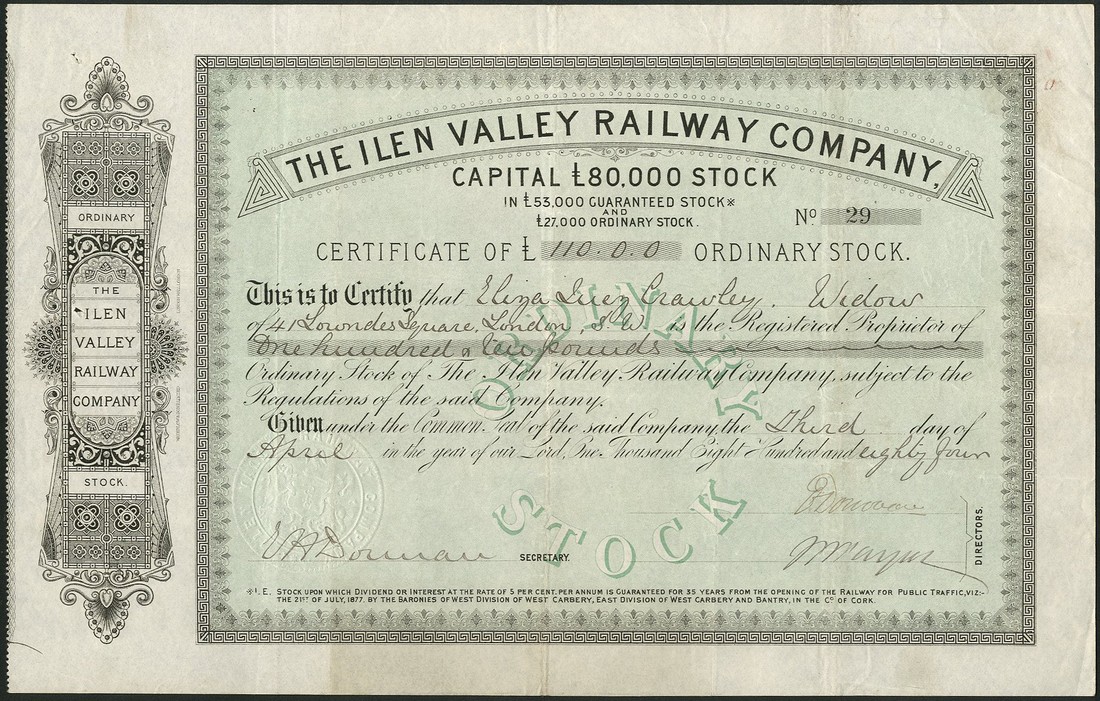 ORDINARY
THE
ILEN
VALLEY
RAILWAY
COMPANY
STOCK.
THE ILEN VALLEY RAILWAY COMPANY,
CAPITAL £80,000 STOCK
IN £53,000 GUARANTEED STOCK*
AND
£27,000 ORDINARY STOCK.
No 29
CERTIFICATE OF £ 110.0.0 ORDINARY STOCK.
This is to Certify that Eliza Inez Crawley. Widow
of 41 Lowndes Square, London S.W. is the Registered Proprietor of
One hundred & ten pounds
Ordinary Stock of The Ilen Valley Railway Company, subject to the
Regulations of the said Company.
Given under the Common Seal of the said Company, the Third day of
April in the year of our Lord, One Thousand Eight Hundred and eighty four
ORDINARY
STOCK
Donovan
DIRECTORS.
Dorman SECRETARY.
*I.E. STOCK UPON WHICH DIVIDEND OR INTEREST AT THE RATE OF 5 PER CENT. PER ANNUM IS GUARANTEED FOR 35 YEARS FROM THE OPENING OF THE RAILWAY FOR PUBLIC TRAFFIC, VIZ:-
THE 21ST OF JULY, 1877. BY THE BARONIES OF WEST DIVISION OF WEST CARBERY, EAST DIVISION OF WEST CARBERY AND BANTRY, IN THE CO OF CORK.